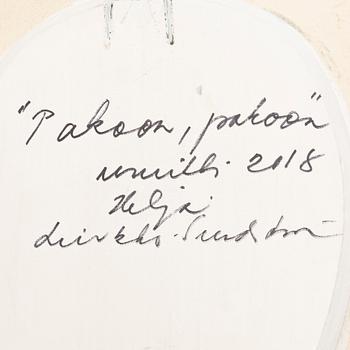 "Pakoon, pakoon"
uniikki 2018
Helja
Liukko-Sundström